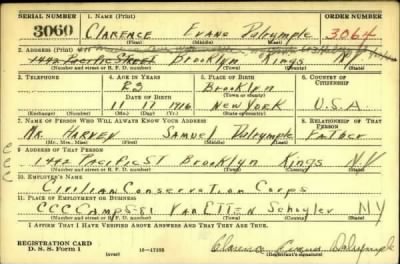 SERIAL NUMBER 1. NAME (Print) ORDER NUMBER
3060 Clarence Evans Dalrymple 3064
(First) (Middle) (Last)
2. ADDRESS (Print)
1442 Pacific Street Brooklyn Kings N.Y.
(Number and street or R. F. D. number) (Town) (County) (State)
3. TELEPHONE 4. AGE IN YEARS 5. PLACE OF BIRTH 6. COUNTRY OF CITIZENSHIP
23 Brooklyn
DATE OF BIRTH (Town or county)
11 17 1916 New York U.S.A.
(Exchange) (Number) (Mo.) (Day) (Yr.) (State or country)
7. NAME OF PERSON WHO WILL ALWAYS KNOW YOUR ADDRESS 8. RELATIONSHIP OF THAT PERSON
Mr. Harven Samuel Dalrymple Father
(Mr., Mrs., Miss) (First) (Middle) (Last)
9. ADDRESS OF THAT PERSON
1442 Pacific St Brooklyn Kings N.Y.
(Number and street or R. F. D. number) (Town) (County) (State)
10. EMPLOYER'S NAME
Civilian Conservation Corps
11. PLACE OF EMPLOYMENT OR BUSINESS
CCC Camp S-81 Van Etten Schuyler NY
(Number and street or R. F. D. number) (Town) (County) (State)
I AFFIRM THAT I HAVE VERIFIED ABOVE ANSWERS AND THAT THEY ARE TRUE.
REGISTRATION CARD
D. S. S. Form 1 (over) 16—17105 Clarence Evans Dalrymple
(Registrant's signature)